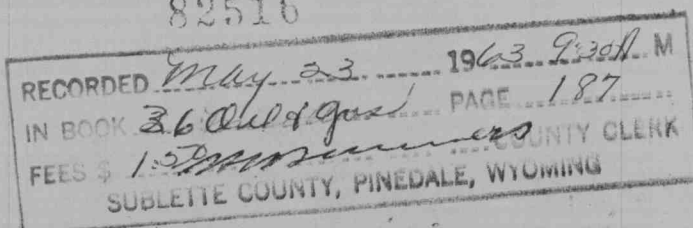 82516
RECORDED May 23 1963 9:30A M
IN BOOK 36 Oil & Gas PAGE 187
FEES $ 1.50 COUNTY CLERK
SUBLETTE COUNTY, PINEDALE, WYOMING